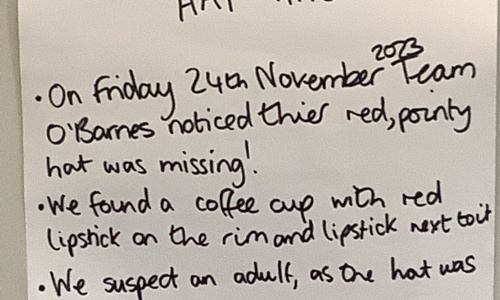 • On Friday 24th November 2023 Team
O'Barnes noticed thier red, pointy
hat was missing!
• We found a coffee cup with red
lipstick on the rim and lipstick next to it
• We suspect an adult, as the hat was